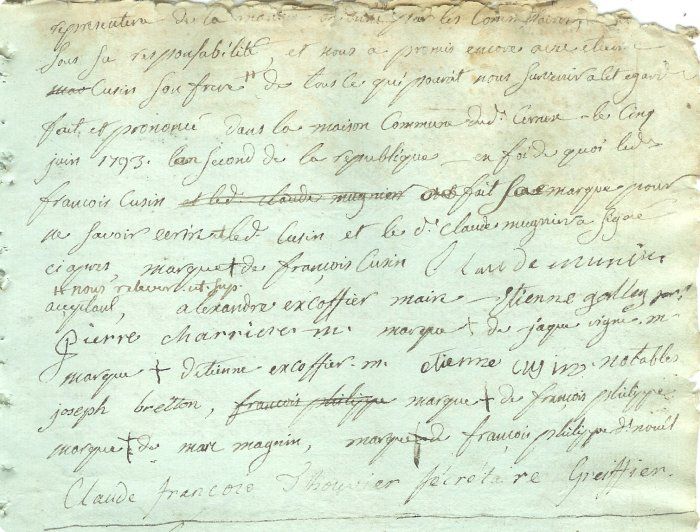 de la par les
Sous sa responsabilité, et nous a promis encore avec etiene
Cusin son frere de tous ce qui pouroit nous survenir a cet egard
fait et prononcé dans la maison Commune dud. Cernex le Cinq
juin 1793. lan second de la republique en foi de quoi led.
françois Cusin et led. claude mugnier ont fait sa marque pour
ne savoir ecrire led. Cusin et le d. Claude mugnier a signé
ci apres, marque + de françois Cusin Claude munier
nous relever et sup
acceptant, alexandre excoffier maire Etienne
Pierre charriere m. marque + de jaque vigne m.
marque + detienne excoffier m. etienne cusin notables
joseph bretton, francois philippe marque + de françois philippe
marque + de marc magnin, marque + de françois philippe
Claude francois Thouvier sécrétaire Greiffier.